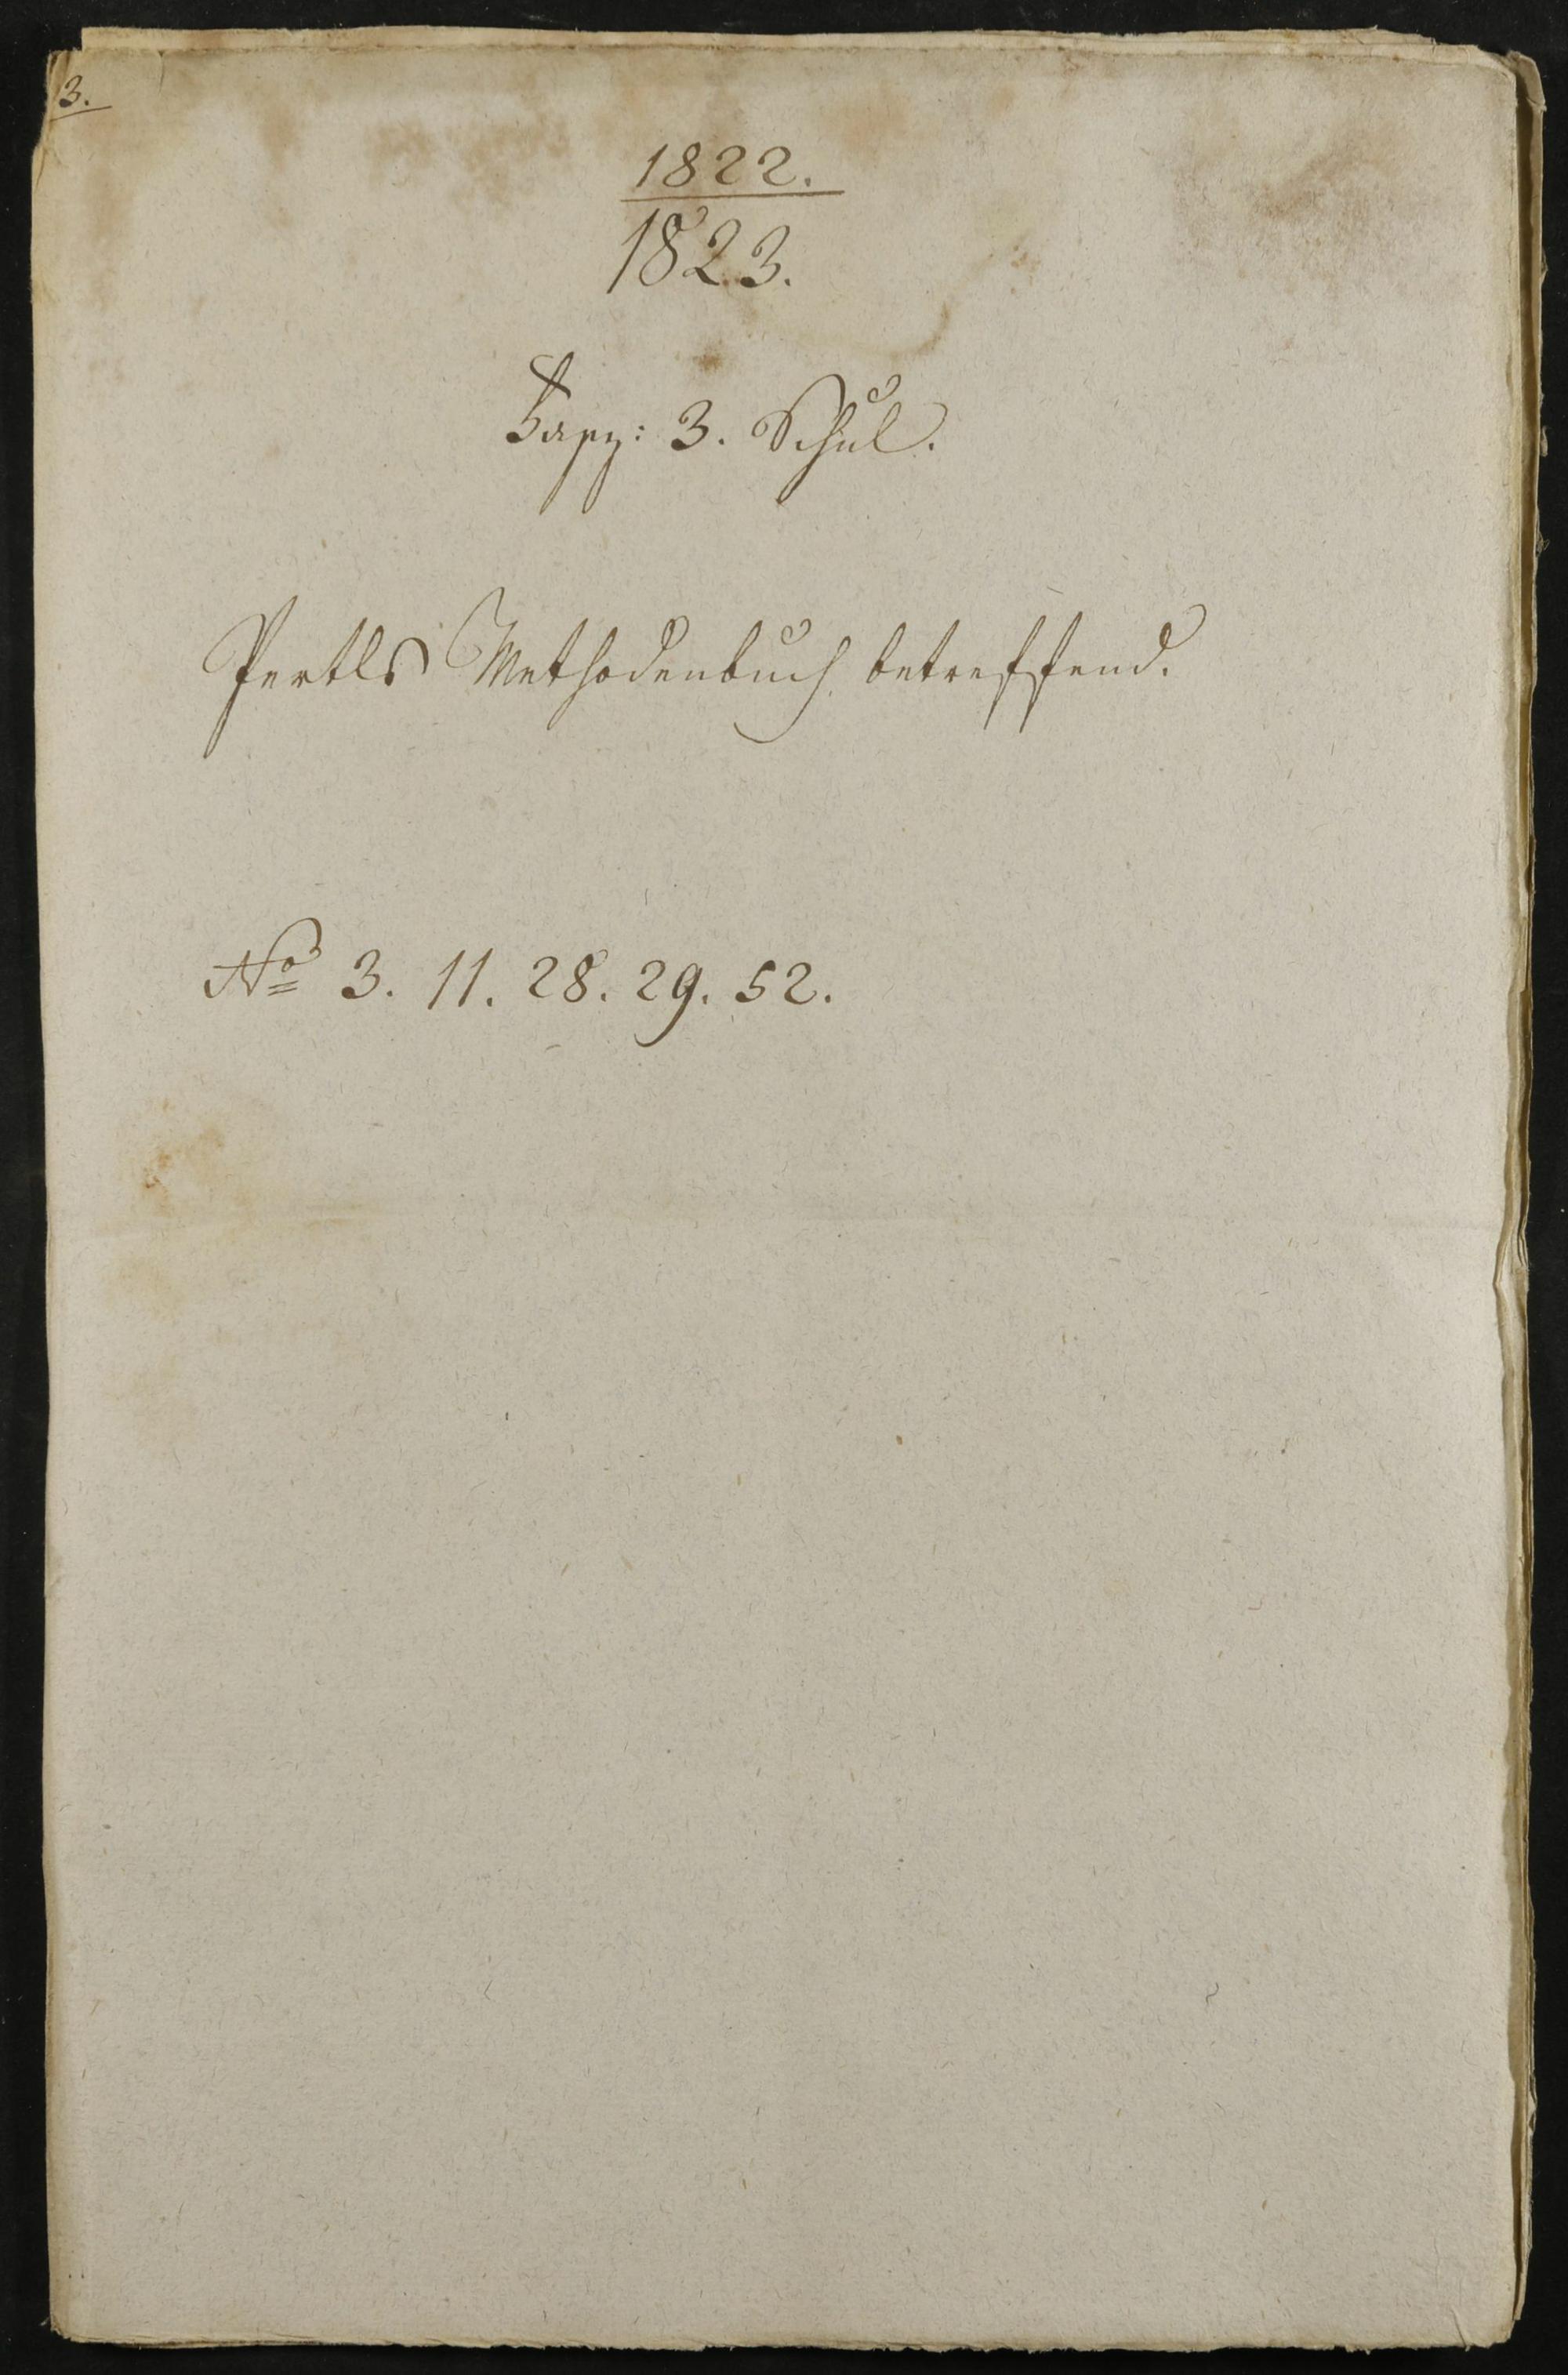 3.
1822.
1823.
Fasz: 3. Schul.
Pertls Methodenbuch betreffend.
No 3. 11. 28. 29. 52.